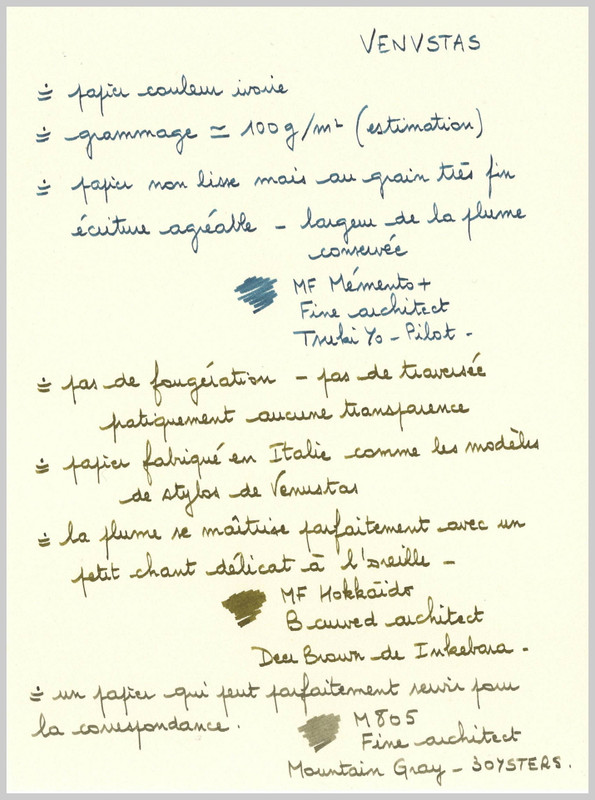 VENVSTAS
papier couleur ivoire
grammage ≃ 100g/m² (estimation)
papier non lisse mais au grain très fin
écriture agréable - largeur de la plume
conservée
MF Mémento+
Fine architect
Tsuki Yo - Pilot -
pas de fougération - pas de traversée
patiquement aucune transparence
papier fabriqué en Italie comme les modèles
de stylos de Venustas
la plume se maîtrise parfaitement avec un
petit chant délicat à l'oreille -
MF Hokkaïdo
B curved architect
Deer Brown de Inkebara -
un papier qui peut parfaitement servir pour
la correspondance.
M805
Fine architect
Mountain Gray - 3OYSTERS.